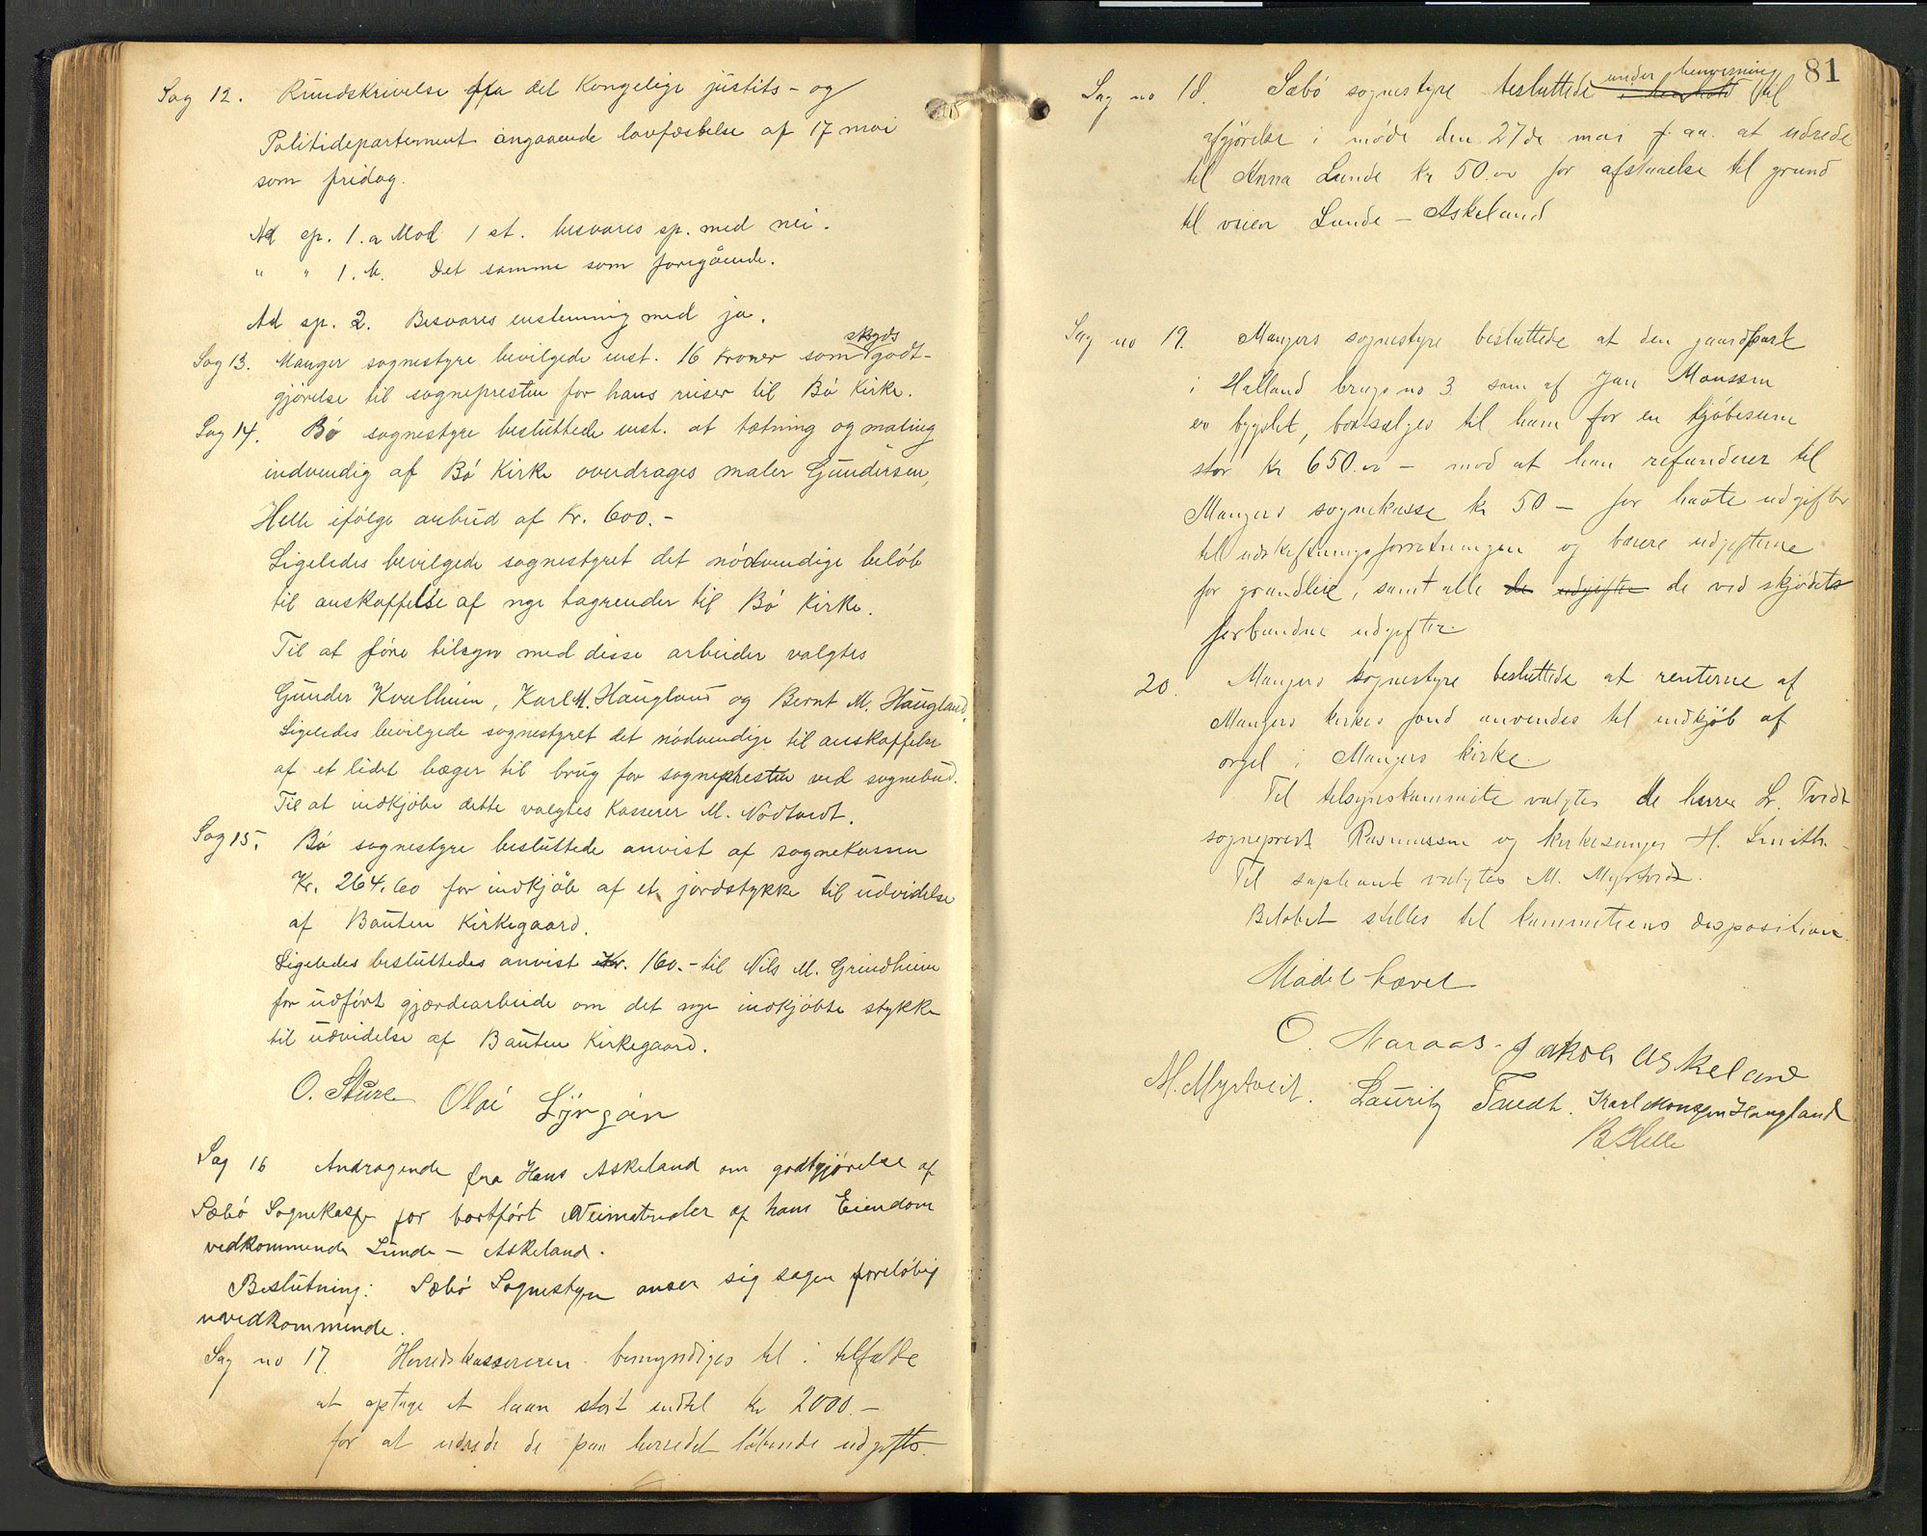 Sag 12. Rundskrivelse fra det Kongelige justits - og
Politidepartement angaaende lovfæstelse af 17 mai
som fridag.
Ad sp. 1. a Mod 1 st. besvares sp. med nei.
" " 1. b. Det samme som foregående.
Ad sp. 2. Besvares enstemmig med ja.
skyds
Sag 13. Manger sognestyre bevilgede enst. 16 Kroner som godt-
gjørelse til sognepresten for hans reiser til Bø Kirke.
Sag 14. Bø sognestyre besluttede enst. at tætning og maling
indvendig af Bø Kirke overdrages maler Gundersen,
Helle ifølge anbud af Kr. 600.-
Ligeledes bevilgede sognestyret det nødvendige beløb
til anskaffelse af nye tagrender til Bø Kirke.
Til at føre tilsyn med disse arbeider valgtes
Gunder Kvalheim, Karl M. Haugland og Bernt M. Haugland.
Ligeledes bevilgede sognestyret det nødvendige til anskaffelse
af et lidet bæger til brug for sognepresten ved sognebud.
Til at indkjøbe dette valgtes Kasserer M. Nødtvedt.
Sag 15. Bø sognestyre besluttede anvist af sognekassen
Kr. 264.60 for indkjøb af et jordstykke til udvidelse
af Bauten Kirkegaard.
Ligeledes besluttedes anvist Kr. 160.- til Nils M. Grindheim
for udført gjærdearbeide om det nye indkjøbte stykke
til udvidelse af Bauten Kirkegaard.
O. Sture Olai Lyngøen
Sag 16 Andragende fra Hans Askeland om godtgjørelse af
Sæbø Sognekasse for bortført Veimaterialer af hans Eiendom
vedkommende Lunde - Askeland.
Beslutning: Sæbø Sognestyre anser sig sagen foreløbig
uvedkommende.
Sag no 17. Herredskassereren bemyndiges til i tilfælde
at optage et laan stort indtil kr 2000.-
for at udrede de paa herredet løbende udgifter.
81
under henvisning
Sag no 18. Sæbø sognestyre besluttede i henhold til
afgjørelse i møde den 27de mai f. aa. at udrede
til Anna Lunde kr 50.00 for afstaaelse til grund
til veien Lunde - Askeland
Sag no 19. Mangers sognestyre besluttede at den gaardpart
i Halland brugs no 3 som af Jan Monssen
er bygslet, bortsælges til ham for en kjøbesum
stor kr 650.00 - mod at han refunderer til
Mangers sognekasse kr 50 - for havte udgifter
til udskiftningsforretningen og bærer udgifterne
for grundleie, samt alle de udgifter de ved skjødets
forbundne udgifter.
20. Mangers sognestyre besluttede at renterne af
Mangers kirkes fond anvendes til indkjøb af
orgel i Mangers kirke.
Til tilsynskommite valgtes de herrer L. Tvedt
sogneprest Rasmussen og kirkesanger H. Smith.
Til supleant valgtes M. Myrtvedt.
Beløbet stilles til kommiteens disposition.
Mødet hævet
O. Naraas. Jakob Askeland
M. Myrtveit. Lauritz Tvedt. Karl Monssen Haugland
B Helle